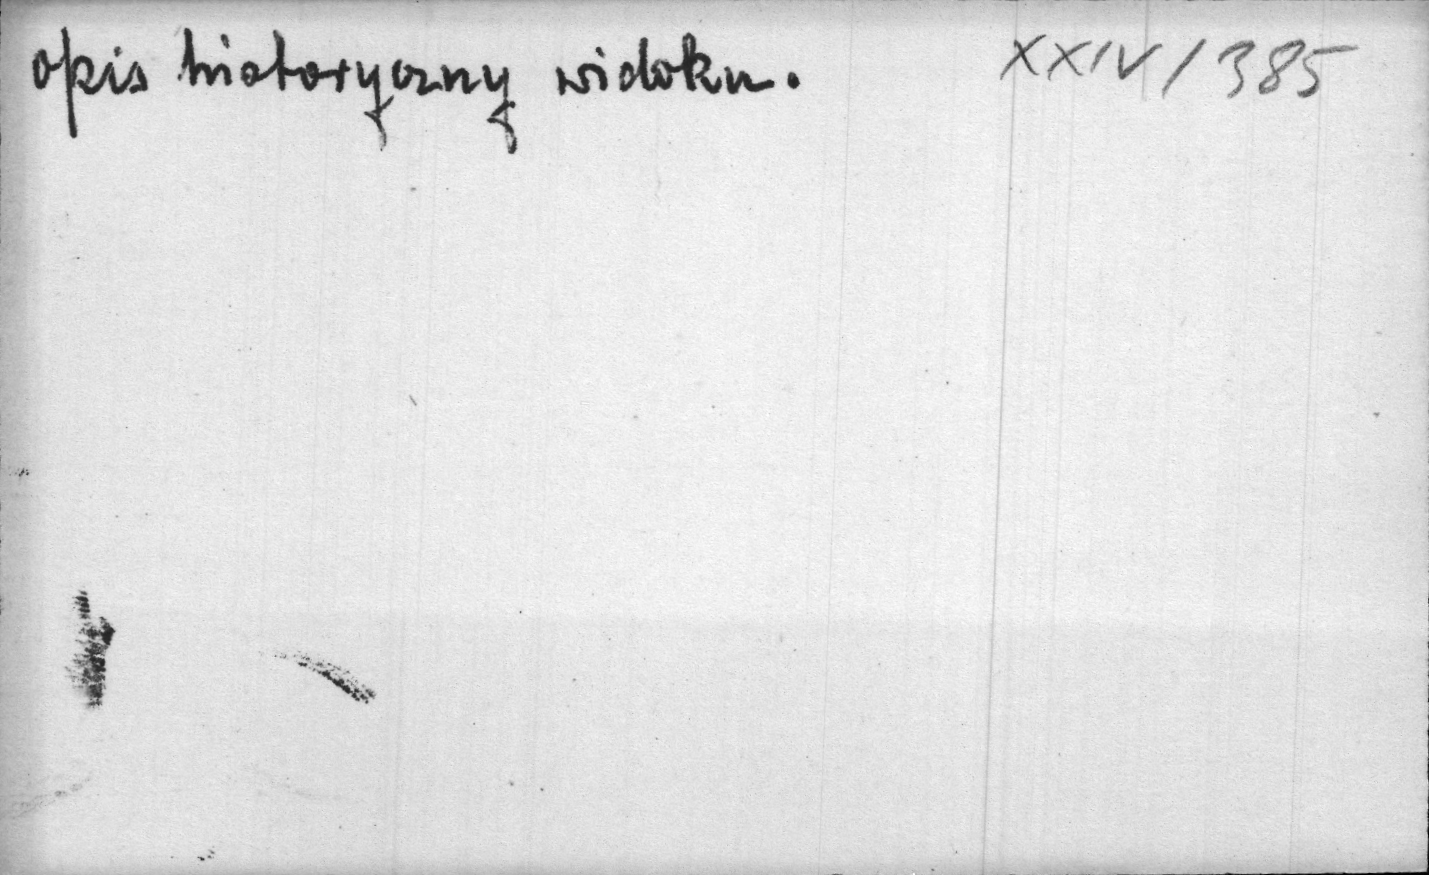 opis historyczny widoku.
XXIV/385